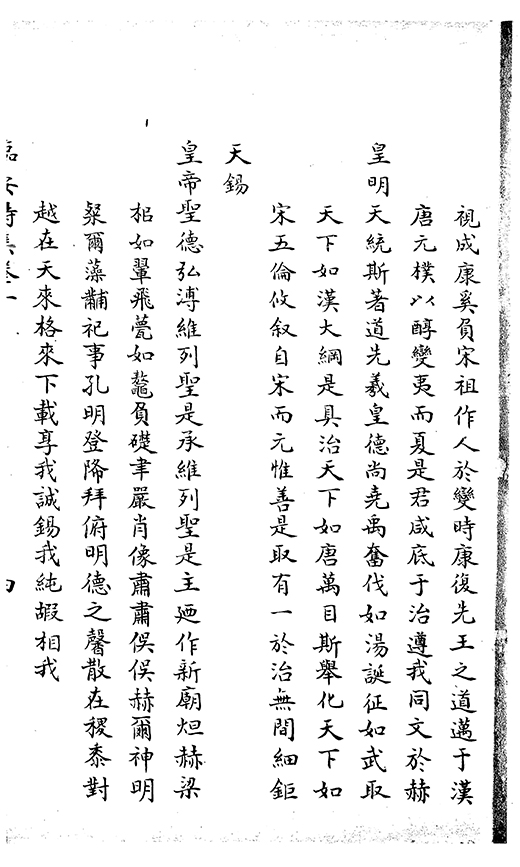 視成康奚負宋祖作人於變時康復先王之道邁于漢
唐元樸以醇變夷而夏是君咸底于治遵我同文於赫
皇明天統斯著道先羲皇德尚堯禹奮伐如湯誕征如武取
天下如漢大綱是具治天下如唐萬目斯舉化天下如
宋五倫攸叙自宋而元惟善是取有一於治無間細鉅
天錫
皇帝聖德弘溥維列聖是承維列聖是主廼作新廟炟赫梁
梠如翬飛甍如鼇負礎聿嚴肖像肅肅俁俁赫爾神明
粲爾藻黼祀事孔明登降拜俯明德之馨散在稷黍對
越在天來格來下載享我誠錫我純嘏相我
臨安詩集卷一